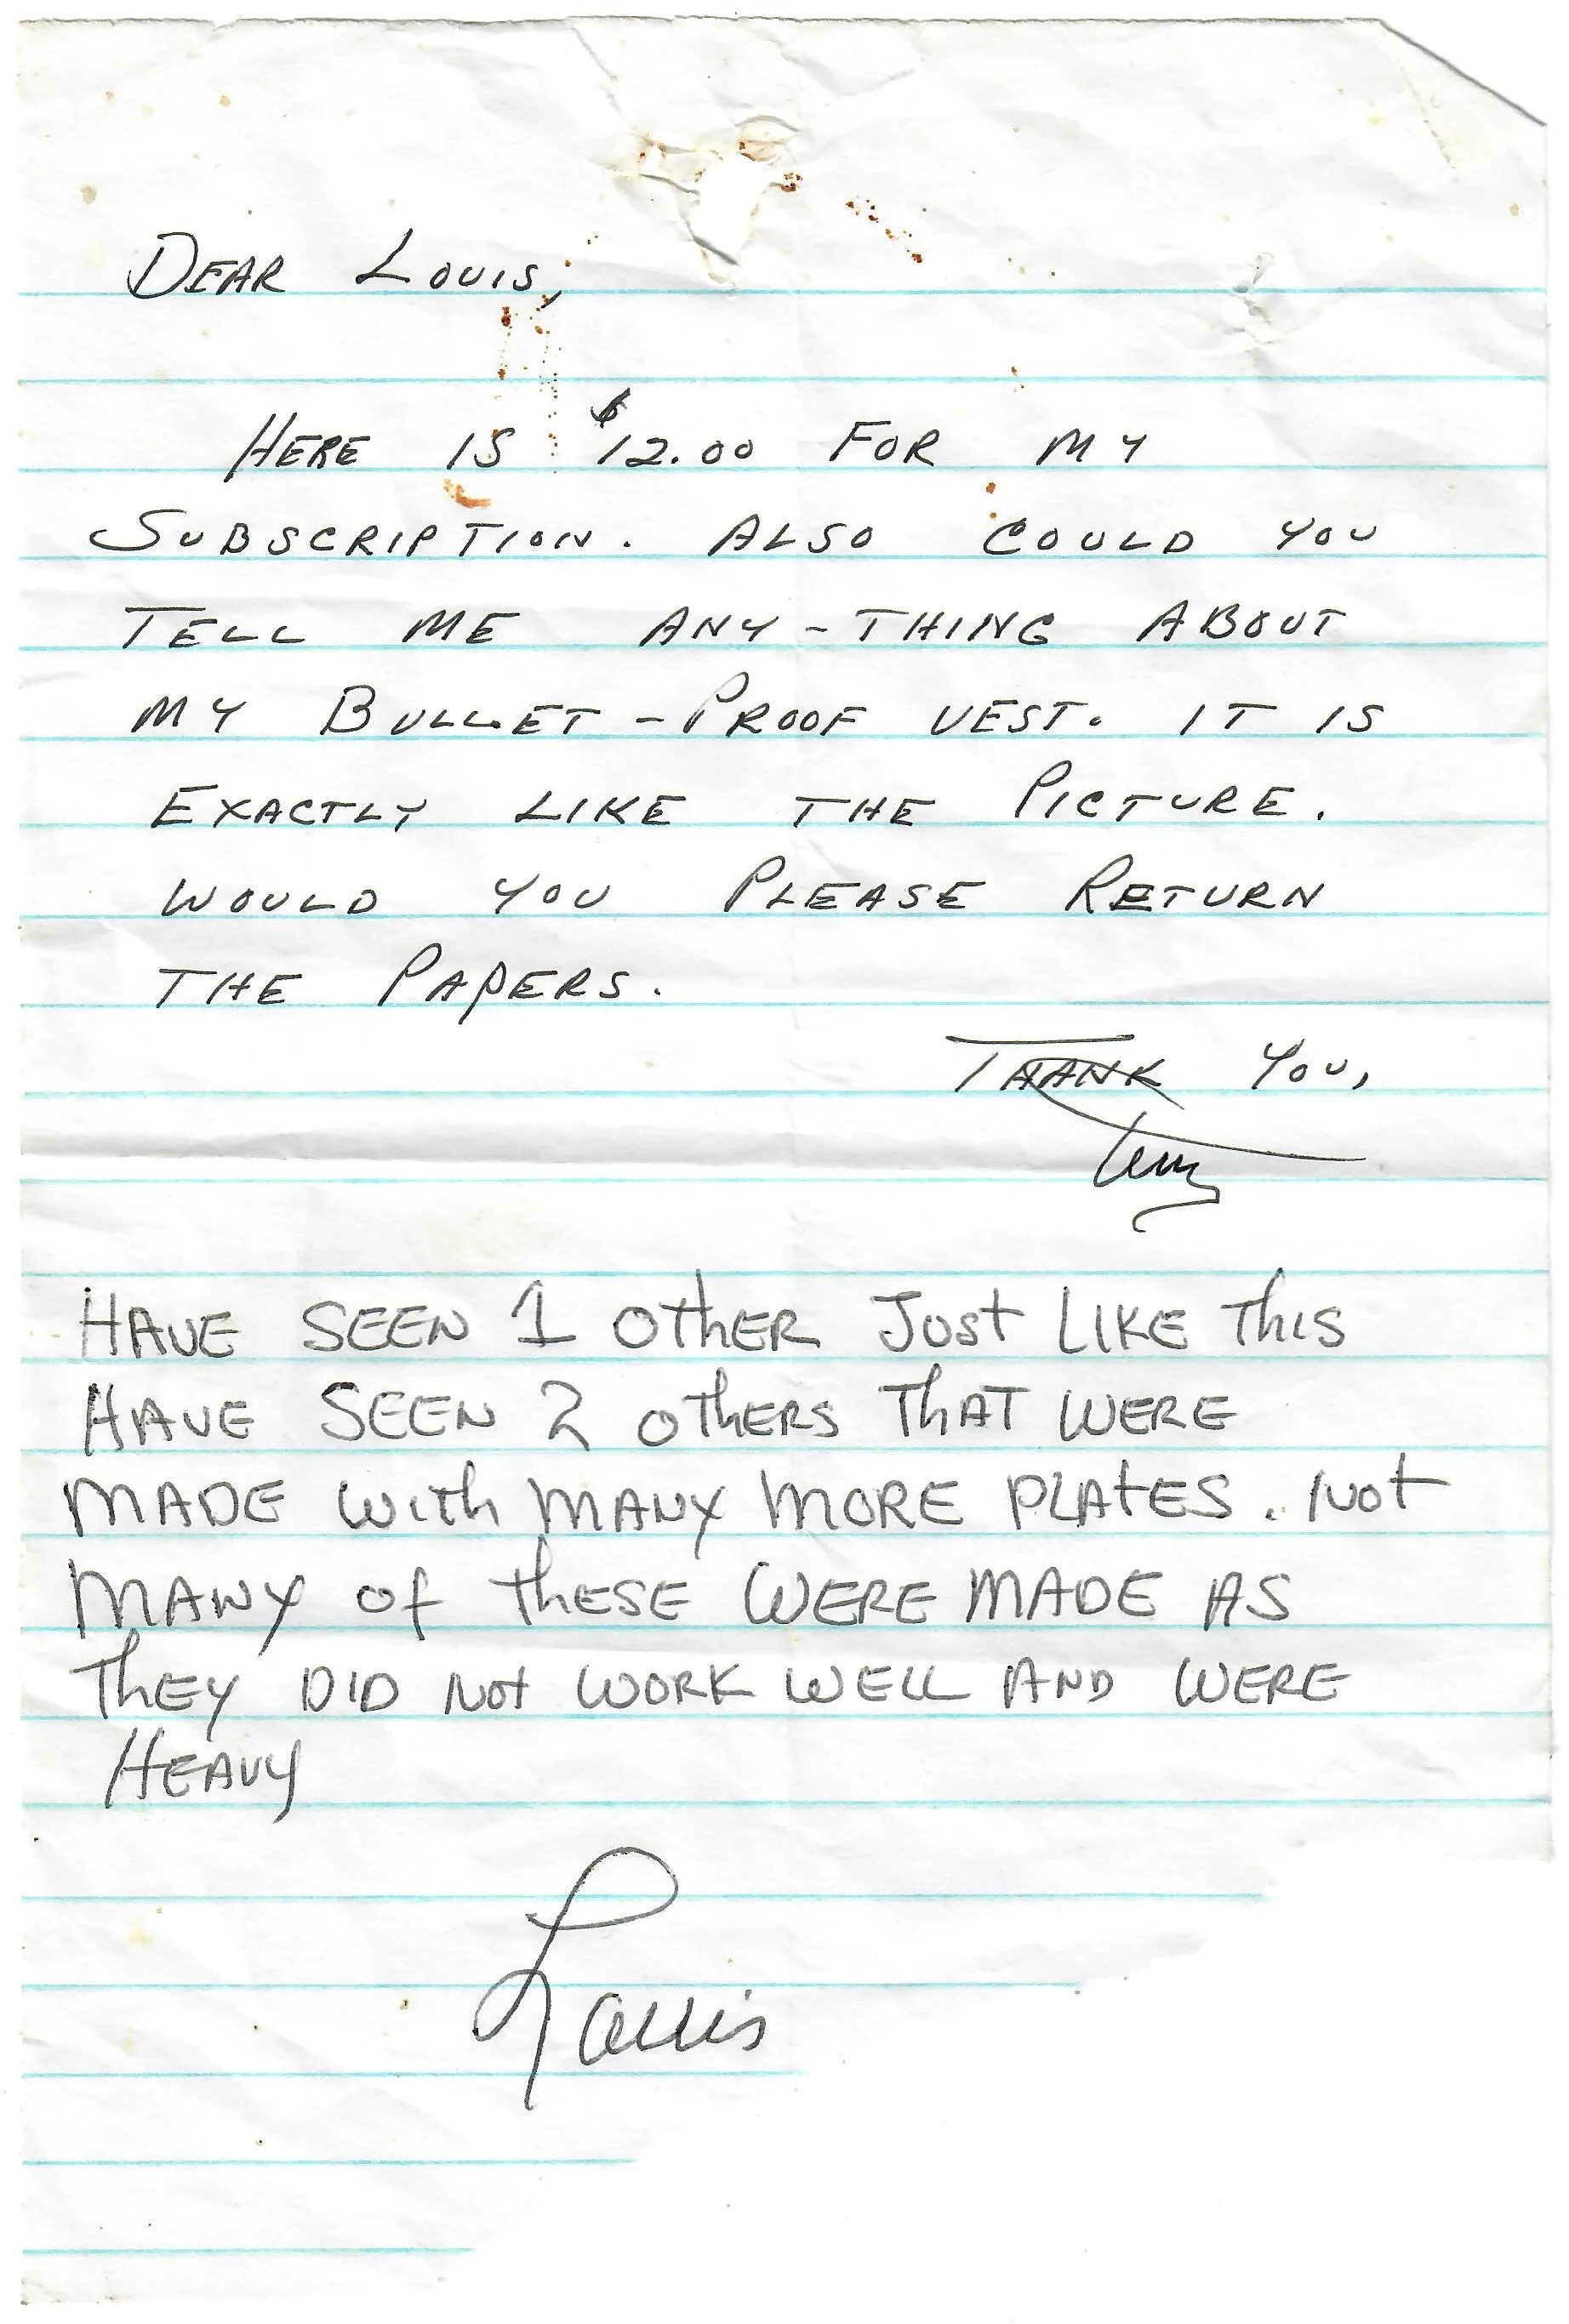 DEAR LOUIS,
HERE IS $12.00 FOR MY
SUBSCRIPTION. ALSO COULD YOU
TELL ME ANY-THING ABOUT
MY BULLET-PROOF VEST. IT IS
EXACTLY LIKE THE PICTURE.
WOULD YOU PLEASE RETURN
THE PAPERS.
THANK YOU,
HAVE SEEN 1 OthER JUSt LIKE This
HAVE SEEN 2 OthERS ThAT WERE
MADE With MANY MORE PLAtES. Not
MANY of thESE WERE MADE AS
ThEY DID Not WORK WELL AND WERE
HEAVY
Louis